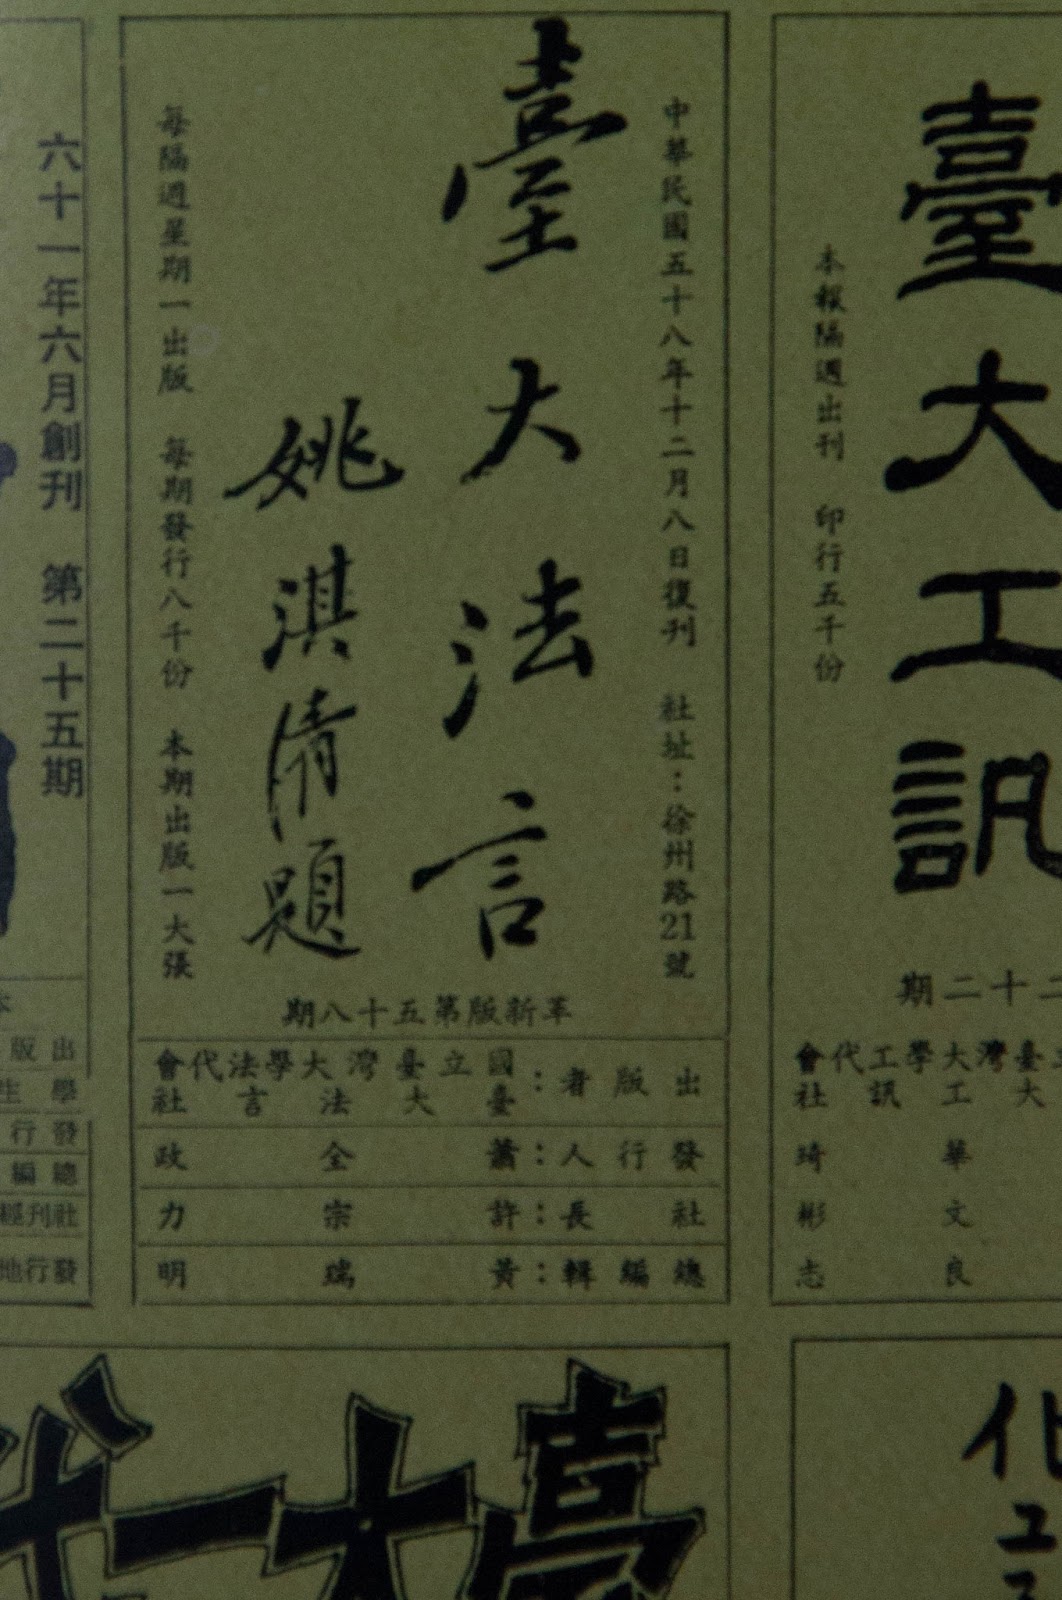 臺大工訊
本報隔週出刊　印行五千份
期二十二
會代工學大灣臺
社訊工大
琦華
彬文
志良
中華民國五十八年十二月八日復刊　社址：徐州路21號
臺大法言
姚淇清題
每隔週星期一出版　每期發行八千份　本期出版一大張
期八十五第版新革
國立臺灣大學法代會
臺大法言社
出版者：
發行人：蕭全政
社長：許宗力
總編輯：黃瑞明
六十一年六月創刊　第二十五期
出版
學生
發行
總編
社刊經
發行地
臺大
化工